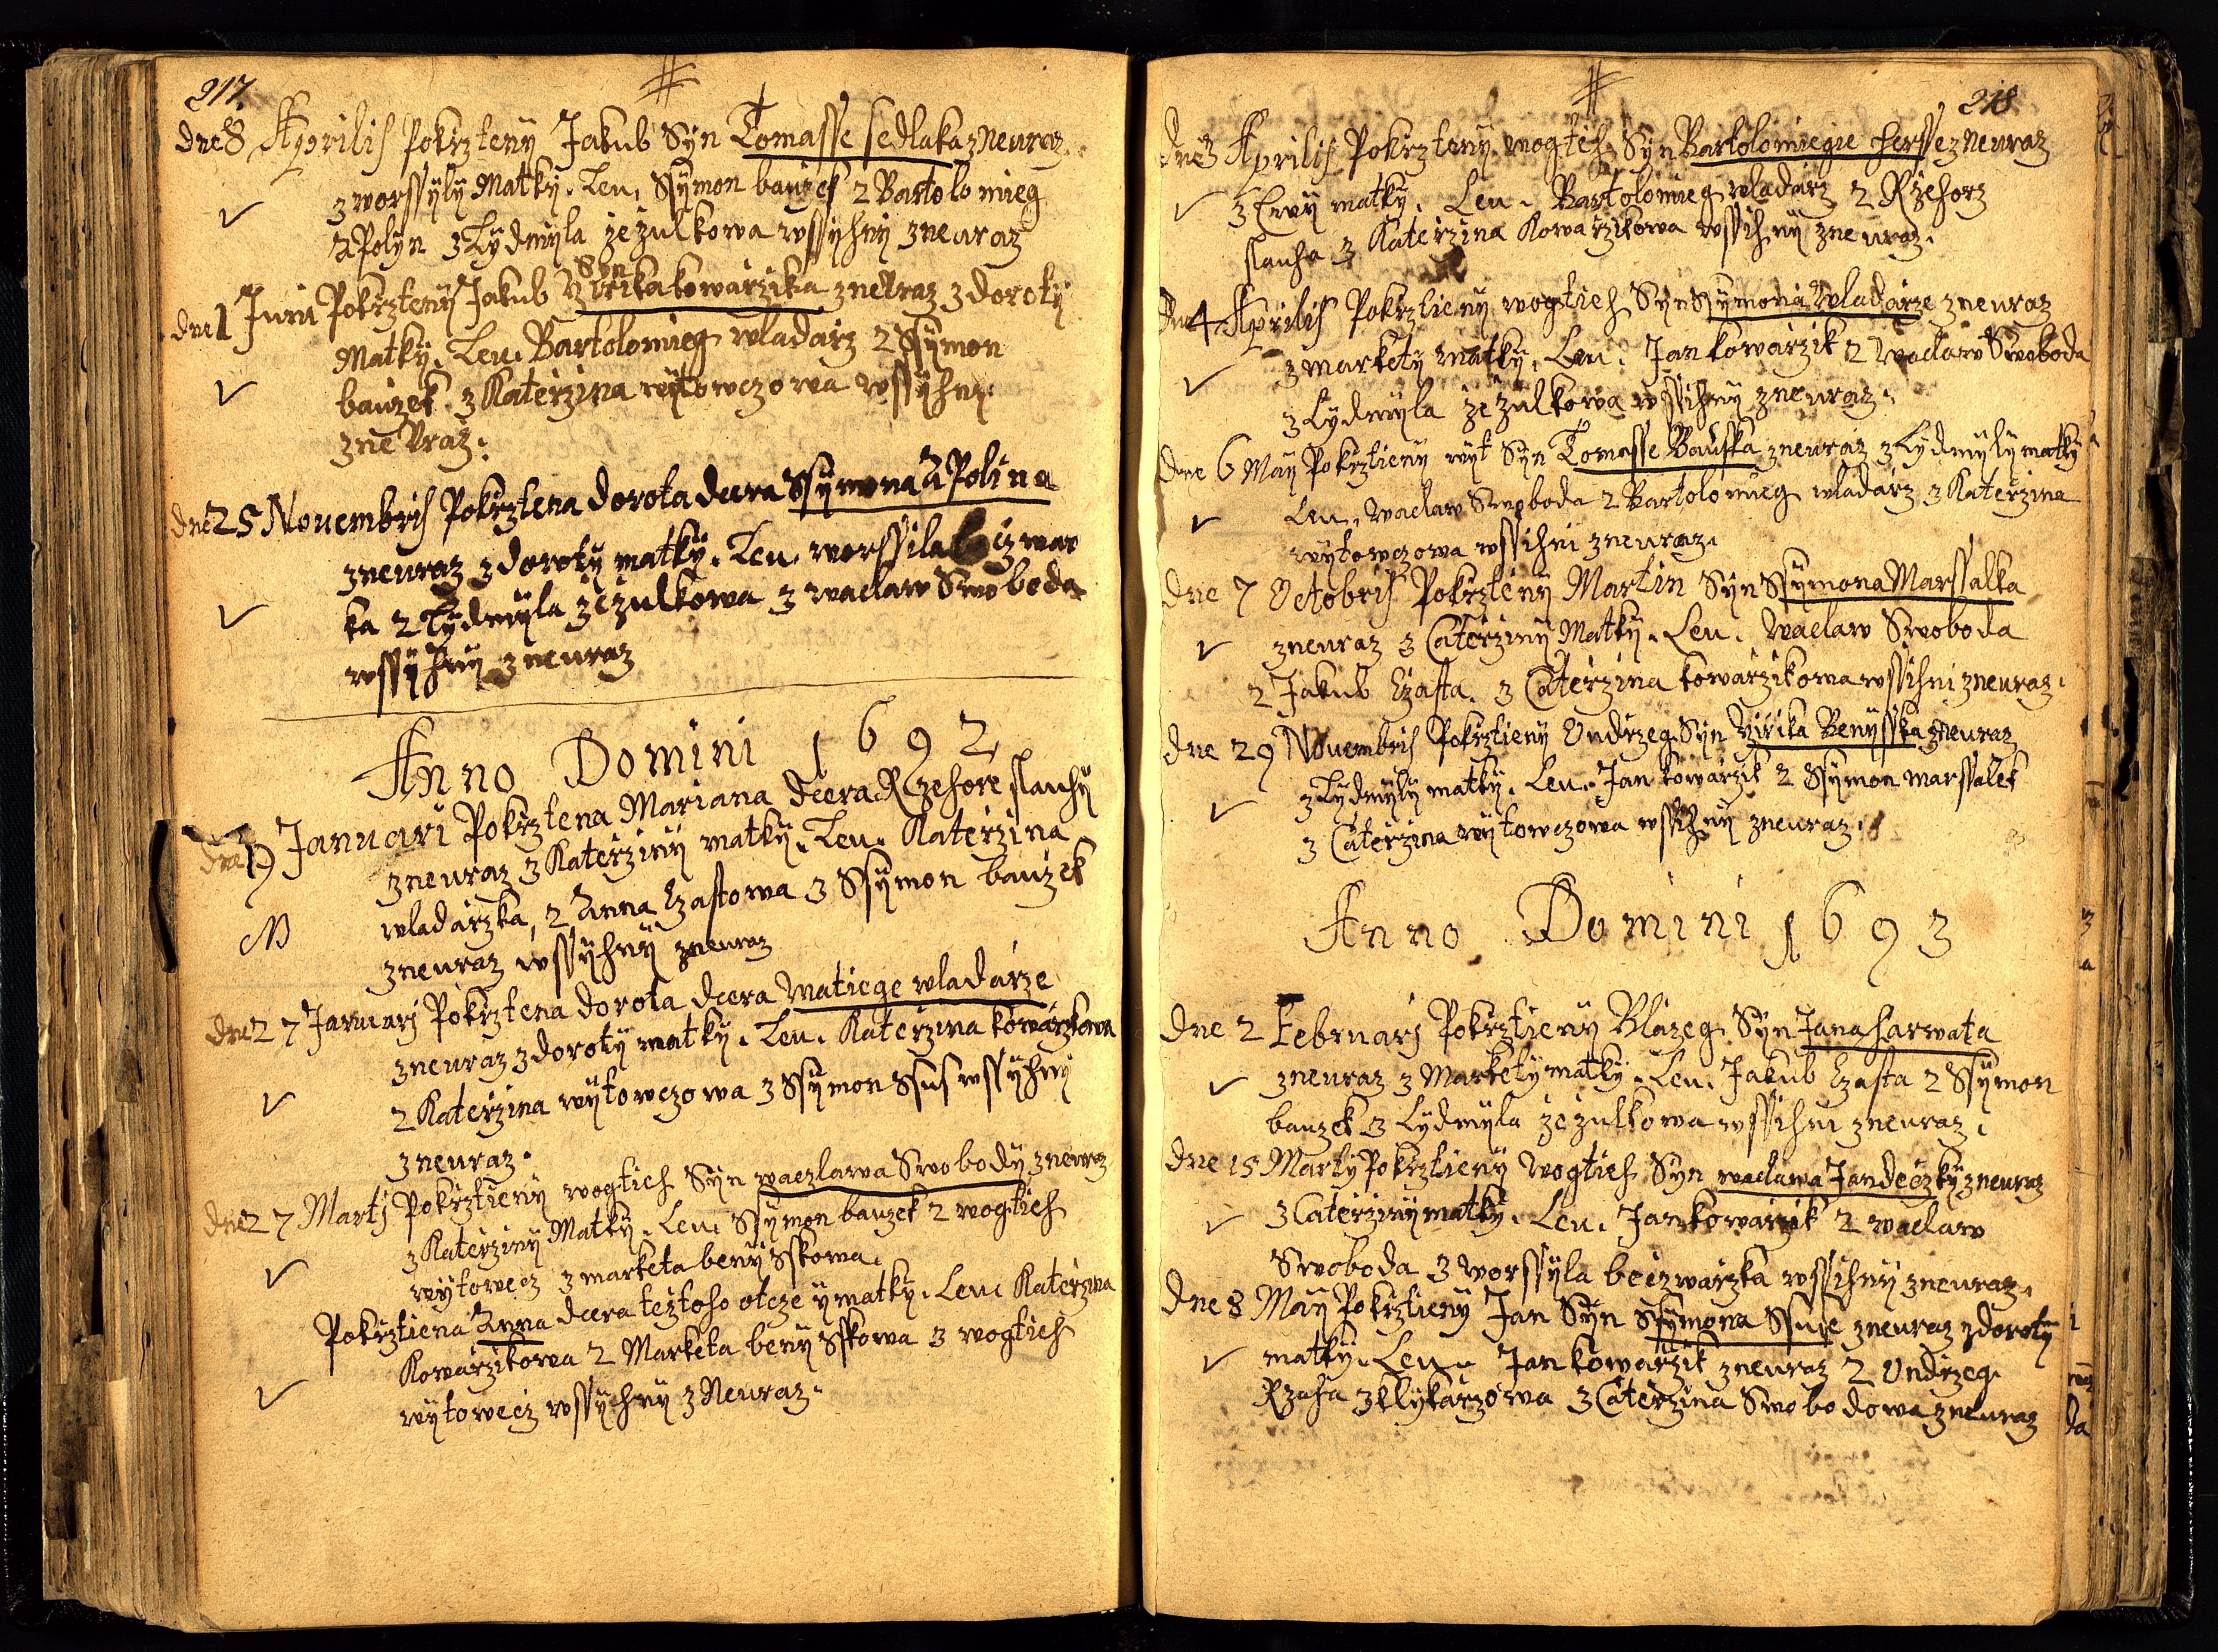 217.
dne 8 Aprilis Pokrzteny Jakub Syn Tomasse sedlaka z Neuraz
z worssyly Matky. Leu. Ssymon bauzek 2 Bartolomieg
aPolyn 3 Lydmyla zezulkowa wssyhny z neuraz
Syn
dne 1 Juni Pokrzteny Jakub Yrika kowarzika z neuraz z doroty
Matky. Leu. Bartolomieg wladarz 2 Ssymon
bauzek 3 Katerzina wytowczowa wssyhny
z neuraz.
dne 25 Nouembris Pokrztena dorota dcera Ssymona aPolina
z neuraz z doroty matky. Leu. worssila
ka 2 Lydmyla zezulkowa 3 waclaw Swoboda
wssyhny z neuraz
Anno Domini 1692
dne 19 Januari Pokrztena Mariana dcera Rzehore slauhy
z neuraz z Katerziny matky. Leu. Katerzina
wladarzka, 2 Anna Czastowa 3 Ssymon bauzek
z neuraz wssyhny z neuraz
dne 27 Januarj Pokrztena dorota dcera Matiege wladarze
z neuraz z doroty matky. Leu. Katerzina kowarzkowa
2 Katerzina wytowczowa 3 Ssymon Ssus wssyhny
z neuraz.
dne 27 Martj Pokrztieny wogtieh Syn waczlawa Swobody z neuraz
z Katerziny Matky. Leu. Ssymon bauzek 2 wogtieh
wytowecz 3 marketa benysskowa.
Pokrztiena Anna dcera teztoho otcze y matky. Leu. Katerzina
Kowarzikowa 2 Marketa benysskowa 3 wogtieh
wytowecz wssyhny z Neuraz.
218
dne 3 Aprilis Pokrzteny wogtieh Syn Bartolomiegie hersse z Neuraz
z Ewy matky. Leu. Bartolomieg wladarz 2 Rzehorz
slauha 3 Katerzina Kowarzikowa wssihny z neuraz.
dne 4 Aprilis Pokrztieny wogtieh Syn Ssymona Wladarze z neuraz
z markety matky. Leu. Jan kowarzik 2 waclaw Swoboda
3 Lydmyla zezulkowa wssihny z neuraz.
dne 6 May Pokrztieny wyt Syn Tomasse Bauska z neuraz z Lydmyly matky
Leu. waclaw Swoboda 2 Bartolomieg wladarz 3 Katerzina
wytowczowa wssihni z neuraz.
dne 7 Octobris Pokrzteny Martin Syn Ssymona Marssalka
z neuraz z Caterziny Matky. Leu. Waclaw Swoboda
2 Jakub Czasta. 3 Caterzina kowarzikowa wssihni z neuraz.
dne 29 Nouembris Pokrztieny Ondrzeg Syn Yirika Benysska z neuraz
z Lydmyly matky. Leu. Jan kowarzik 2 Ssymon marssalek
3 Caterzina wytowczowa wssihny z neuraz.
Anno Domini 1693
dne 2 Februarj Pokrztieny Blazeg Syn Jana harwata
z neuraz z Markety matky. Leu. Jakub Czasta 2 Ssymon
bauzek 3 Lydmyla zezulkowa wssihni z neuraz.
dne 15 Marty Pokrztieny Wogtieh Syn waclawa Jandeczky z neuraz
z Caterziny matky. Leu. Jan kowarzik 2 waclaw
Swoboda 3 worssyla beczwarzka wssihny z neuraz.
dne 8 May Pokrztieny Jan Syn Ssymona Ssuse z neuraz z doroty
matky. Leu. Jan kowarzik z neuraz 2 Ondrzeg
Rzaha z klykarzowa 3 Caterzina Swobodowa z neuraz